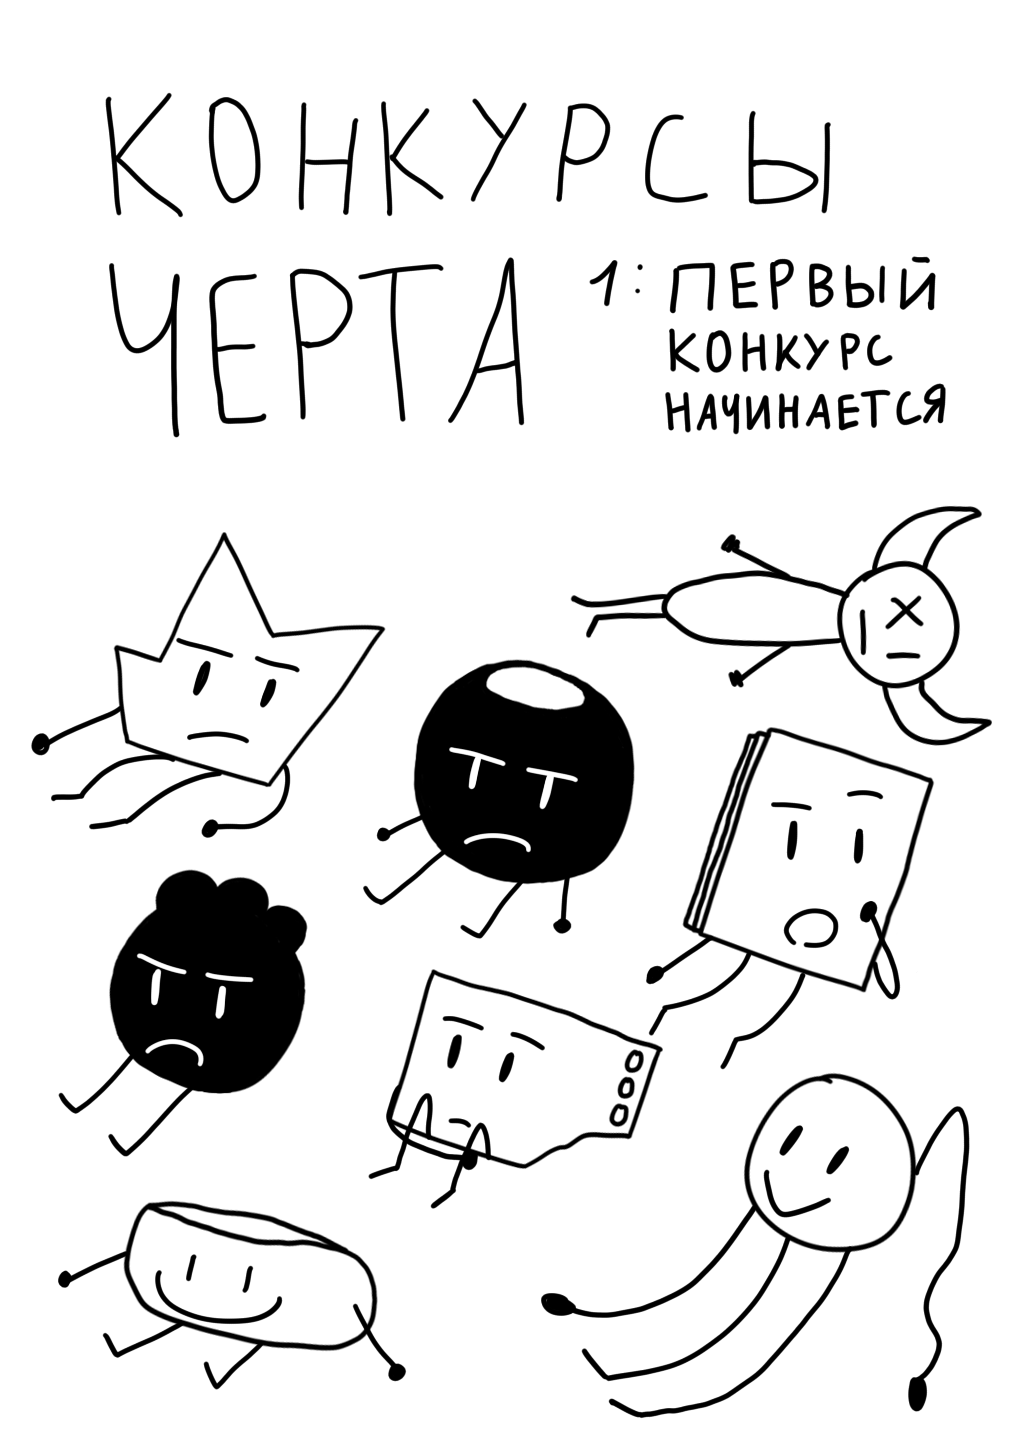 КОНКУРСЫ
ЧЕРТА
1: ПЕРВЫЙ
КОНКУРС
НАЧИНАЕТСЯ